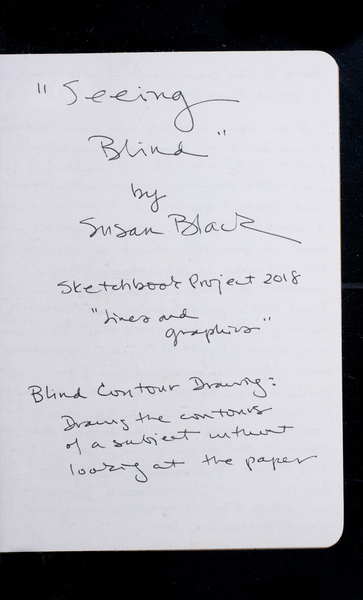 "Seeing
Blind"
by
Susan Black
Sketchbook Project 2018
"Lines and
graphics"
Blind Contour Drawing:
Drawing the contours
of a subject without
looking at the paper